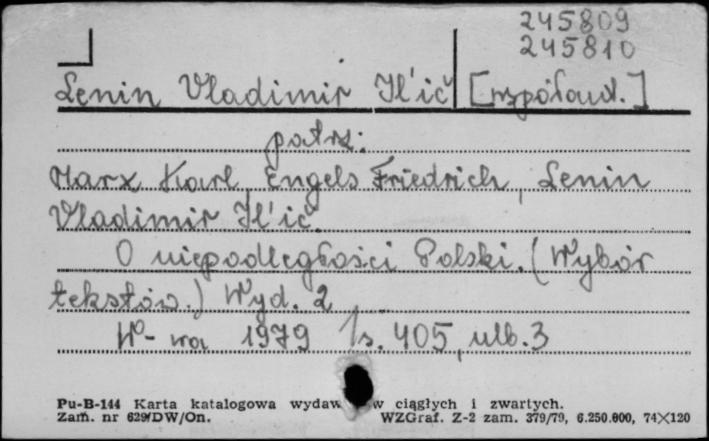 245809
245810
Lenin Vladimir Il'ič [współaut.]
patrz:
Marx Karl, Engels Friedrich, Lenin
Vladimir Il'ič.
O niepodległości Polski. (Wybór
tekstów.) Wyd. 2
W-wa 1979 s. 405, nlb. 3
Pu-B-144 Karta katalogowa wydaw w ciągłych i zwartych.
Zam. nr 629/DW/On. WZGraf. Z-2 zam. 379/79, 6.250.000, 74×120